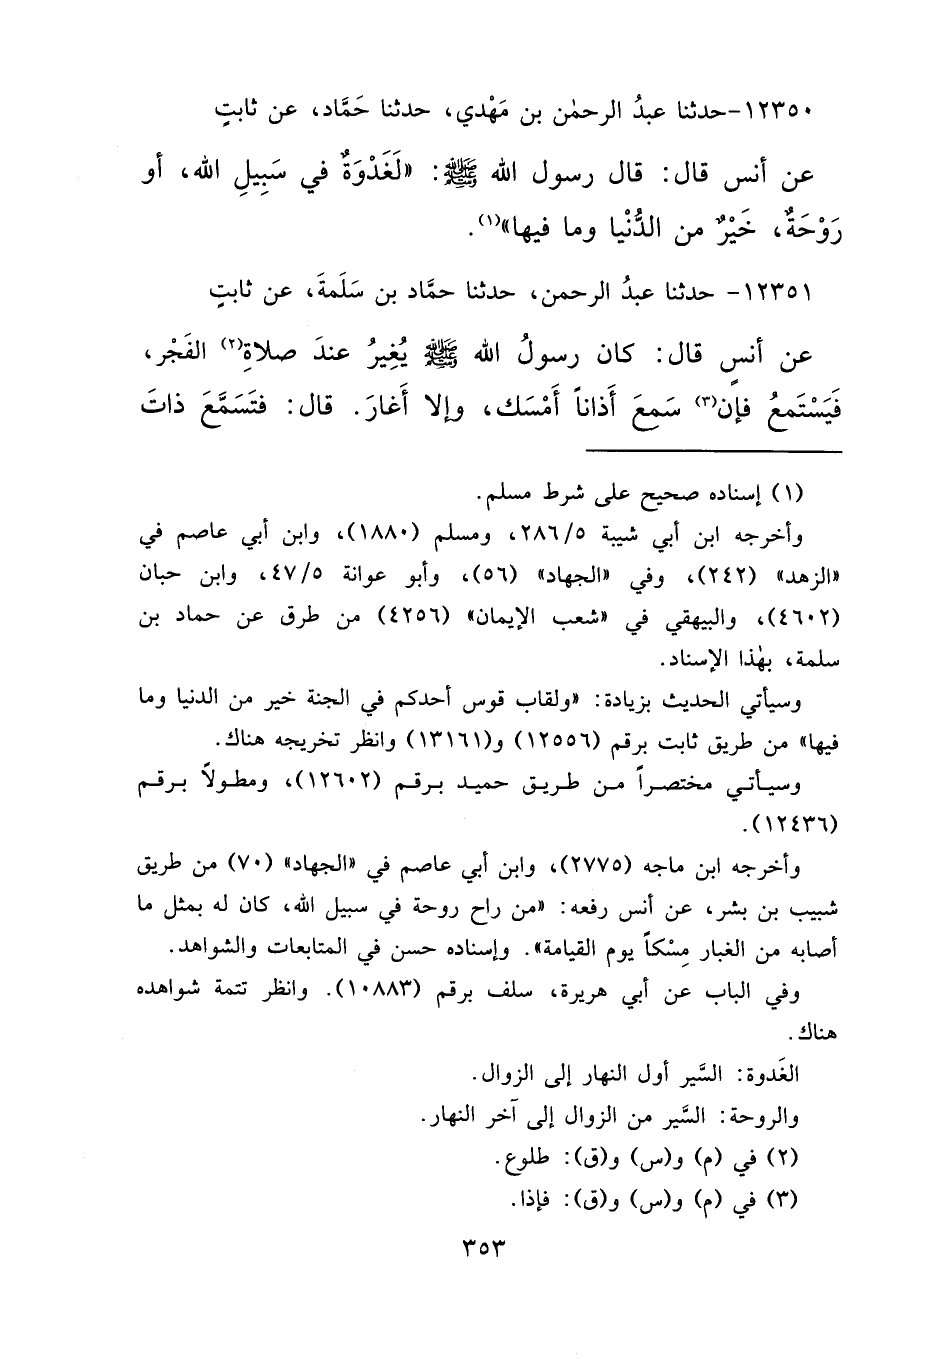 ١٢٣٥٠-حدثنا عبدُ الرحمٰن بن مَهْدي، حدثنا حَمَّاد، عن ثابتٍ
عن أنس قال: قال رسول الله ﷺ: «لَغَدْوَةٌ في سَبِيلِ الله، أو
رَوْحَةٌ، خَيْرٌ من الدُّنْيا وما فيها»(١).
١٢٣٥١- حدثنا عبدُ الرحمن، حدثنا حمَّاد بن سَلَمةَ، عن ثابتٍ
عن أنسٍ قال: كان رسولُ الله ﷺ يُغِيرُ عندَ صلاةِ(٢) الفَجْر،
فَيَسْتَمعُ فإن(٣) سَمعَ أَذاناً أَمْسَك، وإلا أَغارَ. قال: فتَسَمَّعَ ذاتَ
(١) إسناده صحيح على شرط مسلم.
وأخرجه ابن أبي شيبة ٢٨٦/٥، ومسلم (١٨٨٠)، وابن أبي عاصم في
«الزهد» (٢٤٢)، وفي «الجهاد» (٥٦)، وأبو عوانة ٤٧/٥، وابن حبان
(٤٦٠٢)، والبيهقي في «شعب الإيمان» (٤٢٥٦) من طرق عن حماد بن
سلمة، بهٰذا الإسناد.
وسيأتي الحديث بزيادة: «ولقاب قوس أحدكم في الجنة خير من الدنيا وما
فيها» من طريق ثابت برقم (١٢٥٥٦) و(١٣١٦١) وانظر تخريجه هناك.
وسيأتي مختصراً من طريق حميد برقم (١٢٦٠٢)، ومطولاً برقم
(١٢٤٣٦).
وأخرجه ابن ماجه (٢٧٧٥)، وابن أبي عاصم في «الجهاد» (٧٠) من طريق
شبيب بن بشر، عن أنس رفعه: «من راح روحة في سبيل الله، كان له بمثل ما
أصابه من الغبار مِسْكاً يوم القيامة». وإسناده حسن في المتابعات والشواهد.
وفي الباب عن أبي هريرة، سلف برقم (١٠٨٨٣). وانظر تتمة شواهده
هناك.
الغَدوة: السَّير أول النهار إلى الزوال.
والروحة: السَّير من الزوال إلى آخر النهار.
(٢) في (م) و(س) و(ق): طلوع.
(٣) في (م) و(س) و(ق): فإذا.
٣٥٣